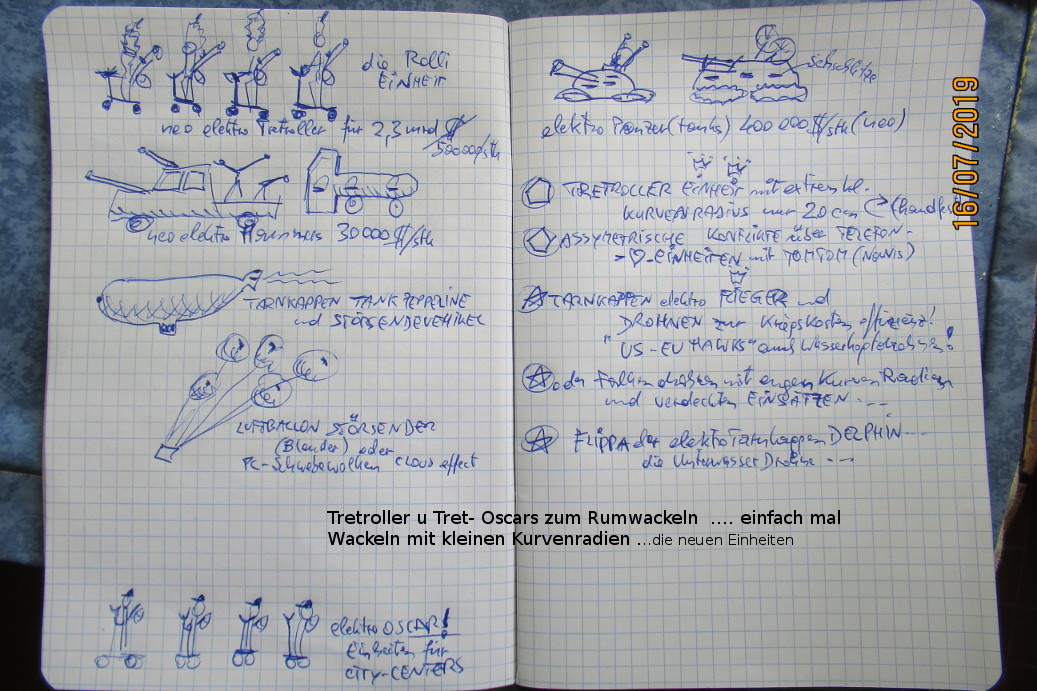 die Rolli
EINHEIT
neo elektro Tretroller für 2,3 mrd $
50000$/stk
neo elektro Hummers 30000$/stk
TARNKAPPEN TANKZEPPELINE
und STÖRSENDEVEHIKEL
LUFTBALLON STÖRSENDER
(Blender) oder
PC-Schwebewolken CLOUD effect
elektro OSCAR!
Einheiten für
CITY-CENTERS
Sehschlitze
elektro Panzer (tanks) 400000$/stk (neo)
TRETROLLER EINHEIT mit extrem kl.
KURVENRADIUS nur 20cm
ASSYMETRISCHE KONFLIKTE über TELEFON-
EINHEITEN mit TOMTOM (Navis)
TARNKAPPEN elektro FLIEGER und
DROHNEN zur Kriegskosten effizienz!
"US-EU HAWKS" auch Wasserkopfdrohnen!
oder Falkendrohnen mit engen Kurven Radien
und verdeckten EINSÄTZEN ---
FLIPPA der elektro Tarnkappen DELPHIN ---
die Unterwasser Drohne ---
Tretroller u Tret- Oscars zum Rumwackeln .... einfach mal
Wackeln mit kleinen Kurvenradien ...die neuen Einheiten
16/07/2019